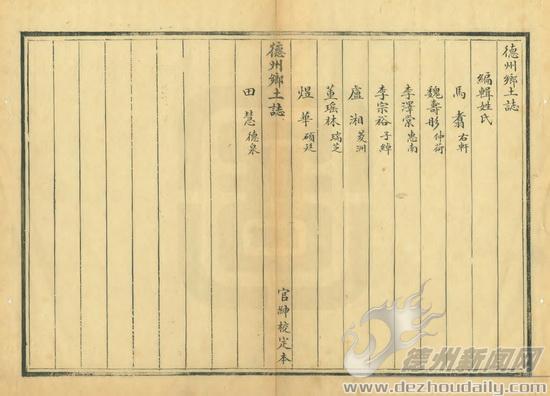 德州鄉土誌
編輯姓氏
馬翥 右軒
魏壽彤 仲荷
李澤棠 惠南
李宗裕 子綽
盧湘 菱洲
董瑶林 瑞芝
煜華 碩廷
德州鄉土誌
官師校定本
田慧 德泉
德州新闻网
www.dezhoudaily.com